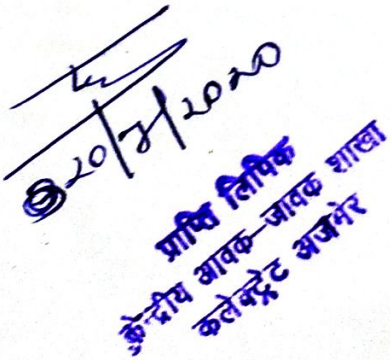 20/7/2020
प्राप्ति लिपिक
केन्द्रीय आवक-जावक शाखा
कलेक्ट्रेट अजमेर